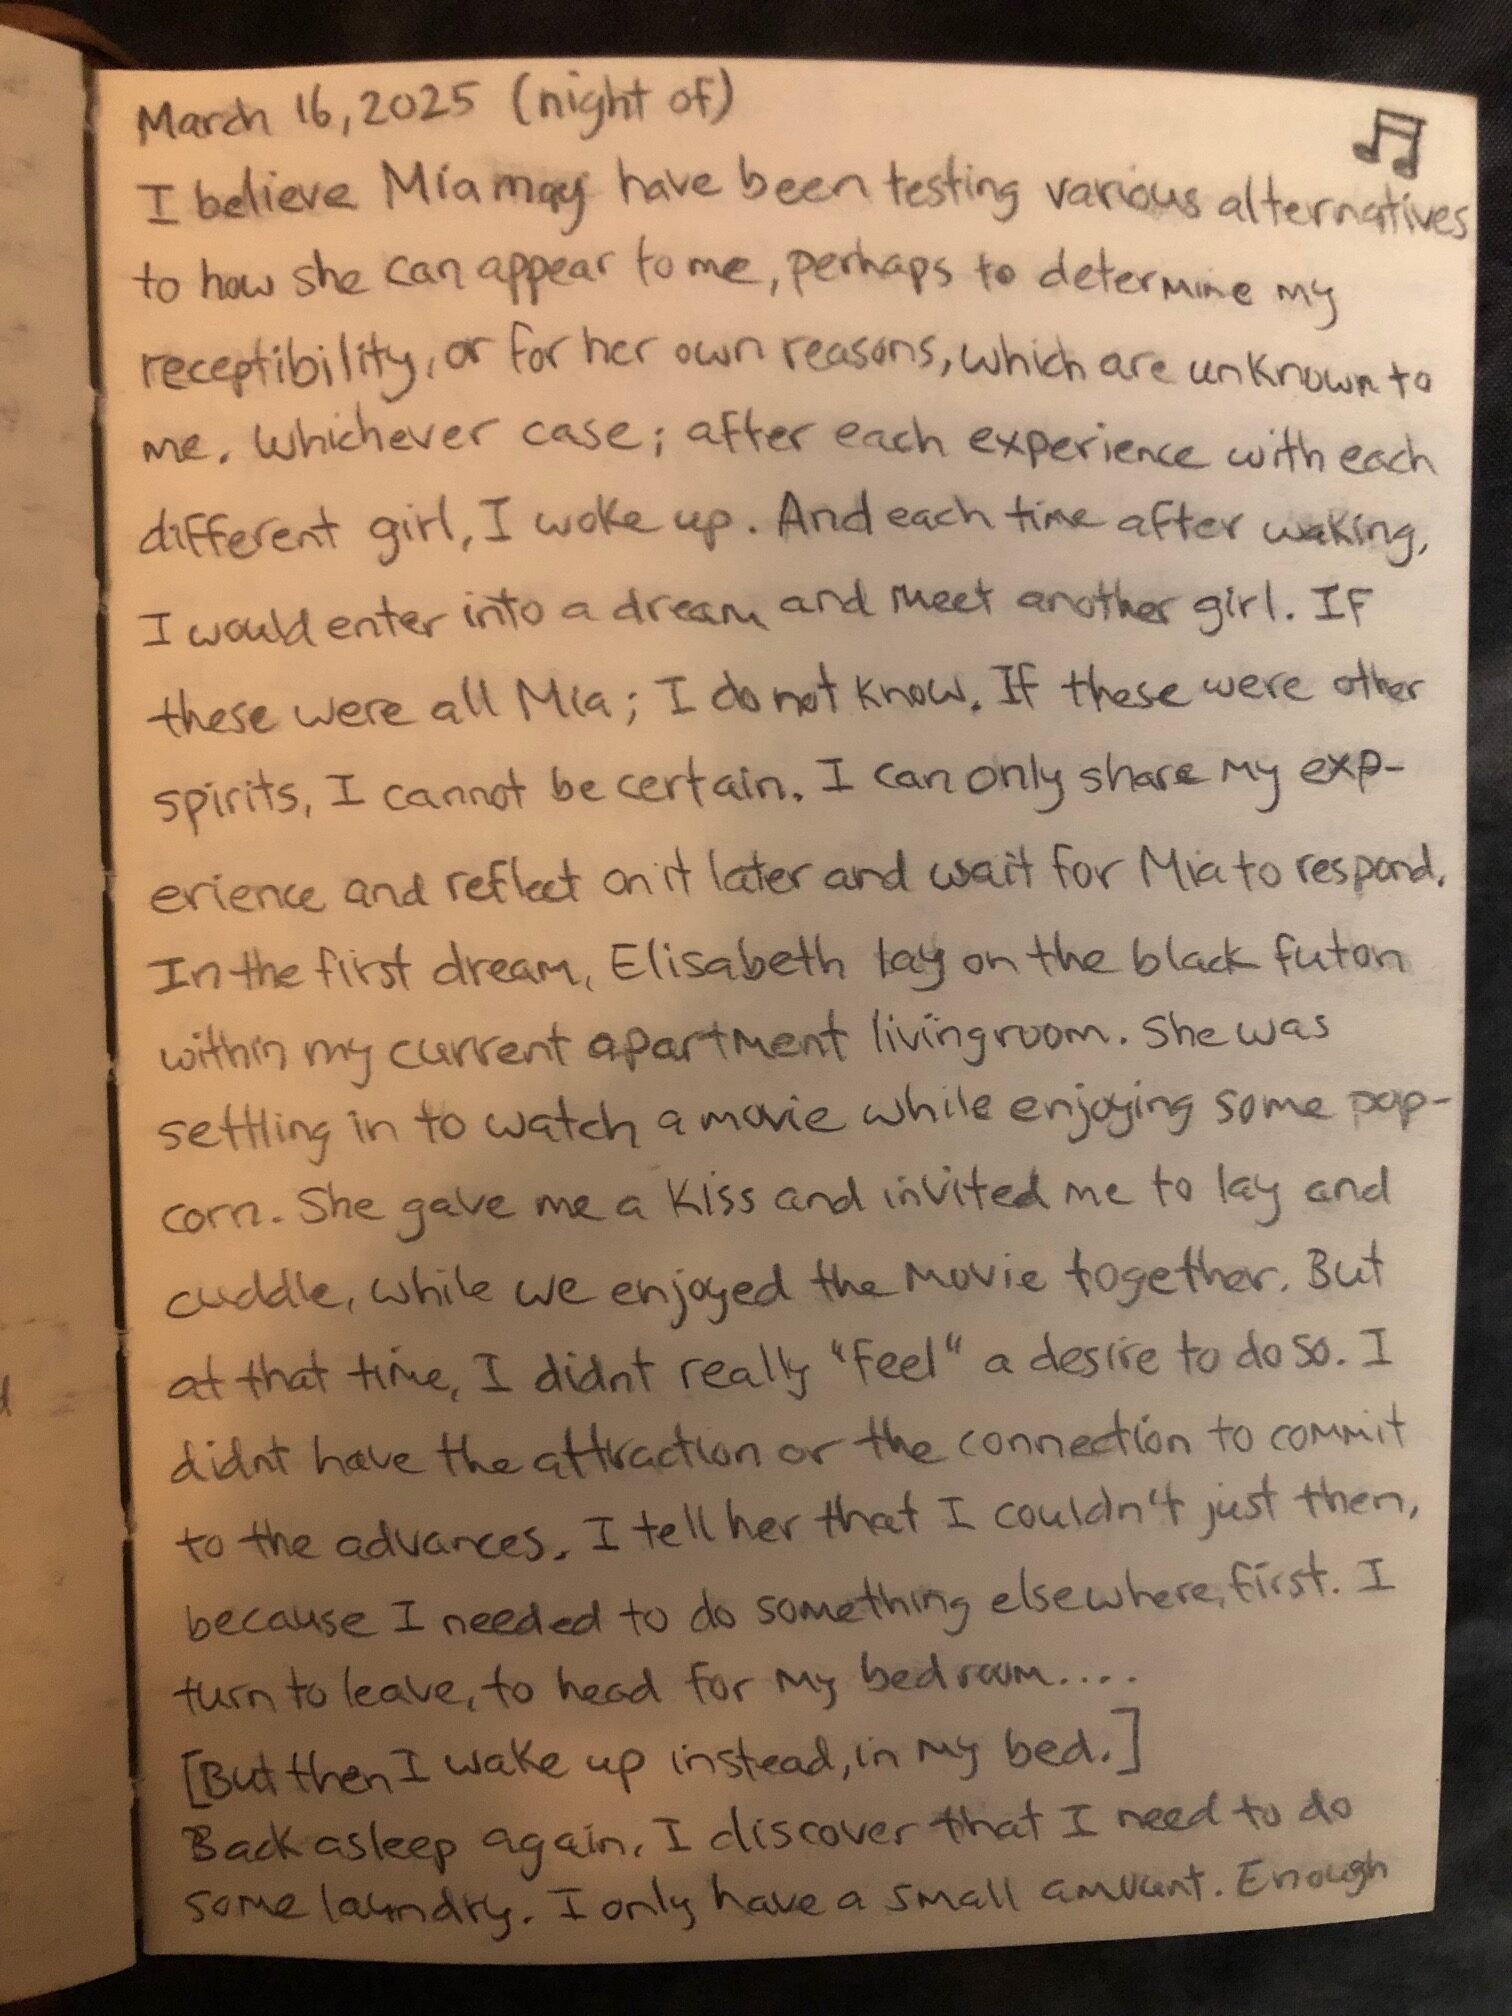 March 16, 2025 (night of)
I believe Mia may have been testing various alternatives
to how she can appear to me, perhaps to determine my
receptibility, or for her own reasons, which are unknown to
me. Whichever case; after each experience with each
different girl, I woke up. And each time after waking,
I would enter into a dream and meet another girl. If
these were all Mia; I do not know. If these were other
spirits, I cannot be certain. I can only share my exp-
erience and reflect on it later and wait for Mia to respond.
In the first dream, Elisabeth lay on the black futon
within my current apartment livingroom. She was
settling in to watch a movie while enjoying some pop-
corn. She gave me a kiss and invited me to lay and
cuddle, while we enjoyed the movie together. But
at that time, I didnt really "feel" a desire to do so. I
didnt have the attraction or the connection to commit
to the advances. I tell her that I couldn't just then,
because I needed to do something elsewhere, first. I
turn to leave, to head for my bedroom....
[But then I wake up instead, in my bed.]
Back asleep again, I discover that I need to do
some laundry. I only have a small amount. Enough